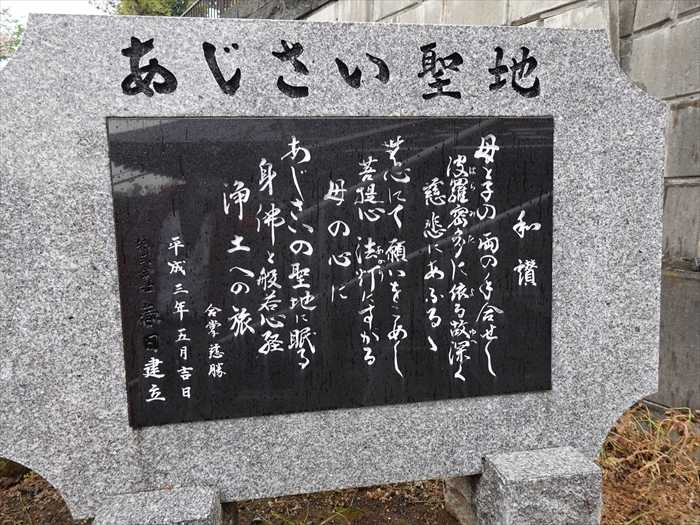 あじさい聖地
和讃
母と子の両の手合せし
波羅蜜多に依る故深く
はらみた よ ゆえ
慈悲にあふるゝ
苦心にて願いをこめし
菩提心法灯にすがる
母の心に
あじさいの聖地に眠る
身佛と般若心経
浄土への旅
合掌慈勝
平成三年五月吉日
春日建立